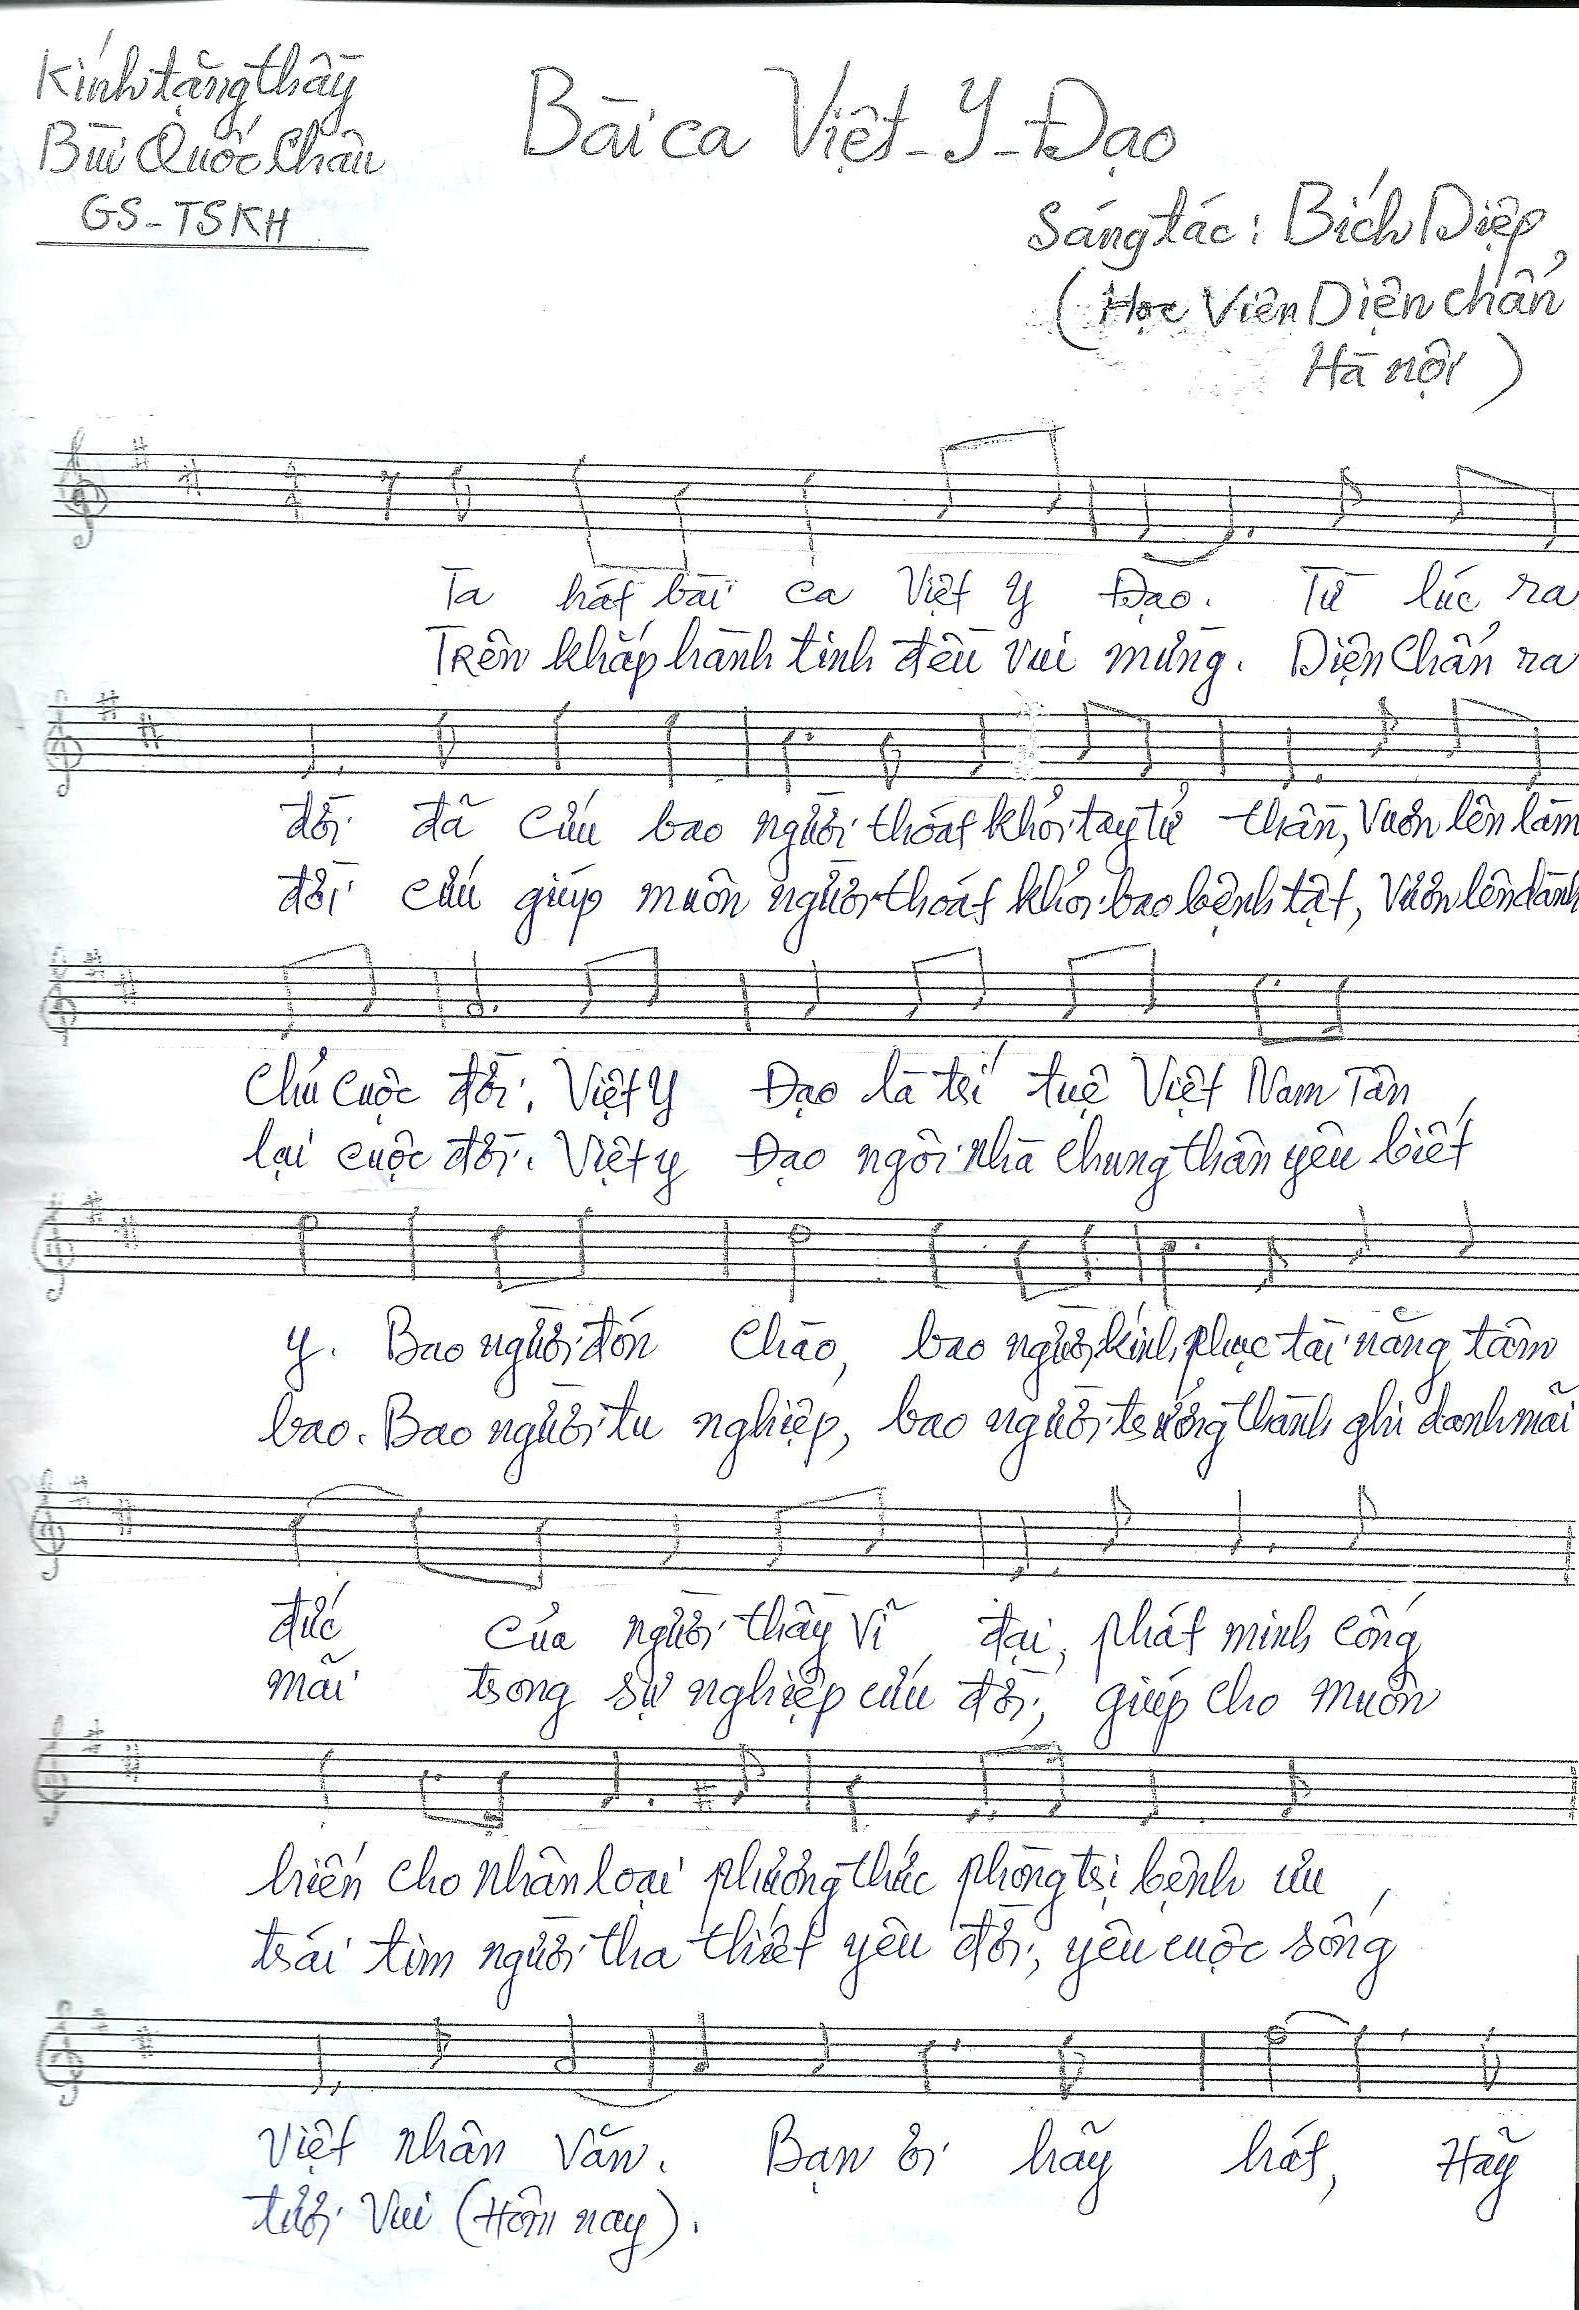 Kính tặng thầy
Bùi Quốc Châu
GS-TSKH
Bài ca Việt-Y-Đạo
Sáng tác: Bích Diệp
(Học Viên Diện chẩn
Hà nội)
Ta hát bài ca Việt Y Đạo. Từ lúc ra
Trên khắp hành tinh đều vui mừng. Diện Chẩn ra
đời đã cứu bao người thoát khỏi tay tử thần, Vươn lên làm
đời cứu giúp muôn người thoát khỏi bao bệnh tật, Vươn lên dành
chủ cuộc đời. Việt Y Đạo là trí tuệ Việt Nam Tân
lại cuộc đời. Việt y Đạo ngôi nhà chung thân yêu biết
y. Bao người đón chào, bao người kính phục tài năng tâm
bao. Bao người tu nghiệp, bao người trưởng thành ghi danh mãi
đức của người thầy vĩ đại, phát minh cống
mãi trong sự nghiệp cứu đời, giúp cho muôn
hiến cho nhân loại phương thức phòng trị bệnh ưu
trái tim người tha thiết yêu đời, yêu cuộc sống
Việt nhân văn. Bạn ơi hãy hát, Hãy
tươi vui (Hôm nay).